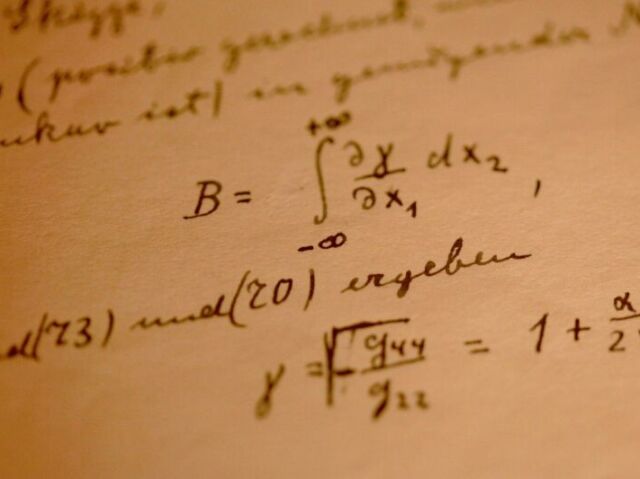 Skizze,
(positiv gerechnet, 
ist) in genügender
B = ∫_{-∞}^{+∞} ∂γ/∂x₁ dx₂ ,
(73) und (70) ergeben
γ = √(-g₄₄/g₂₂) = 1 + α/2